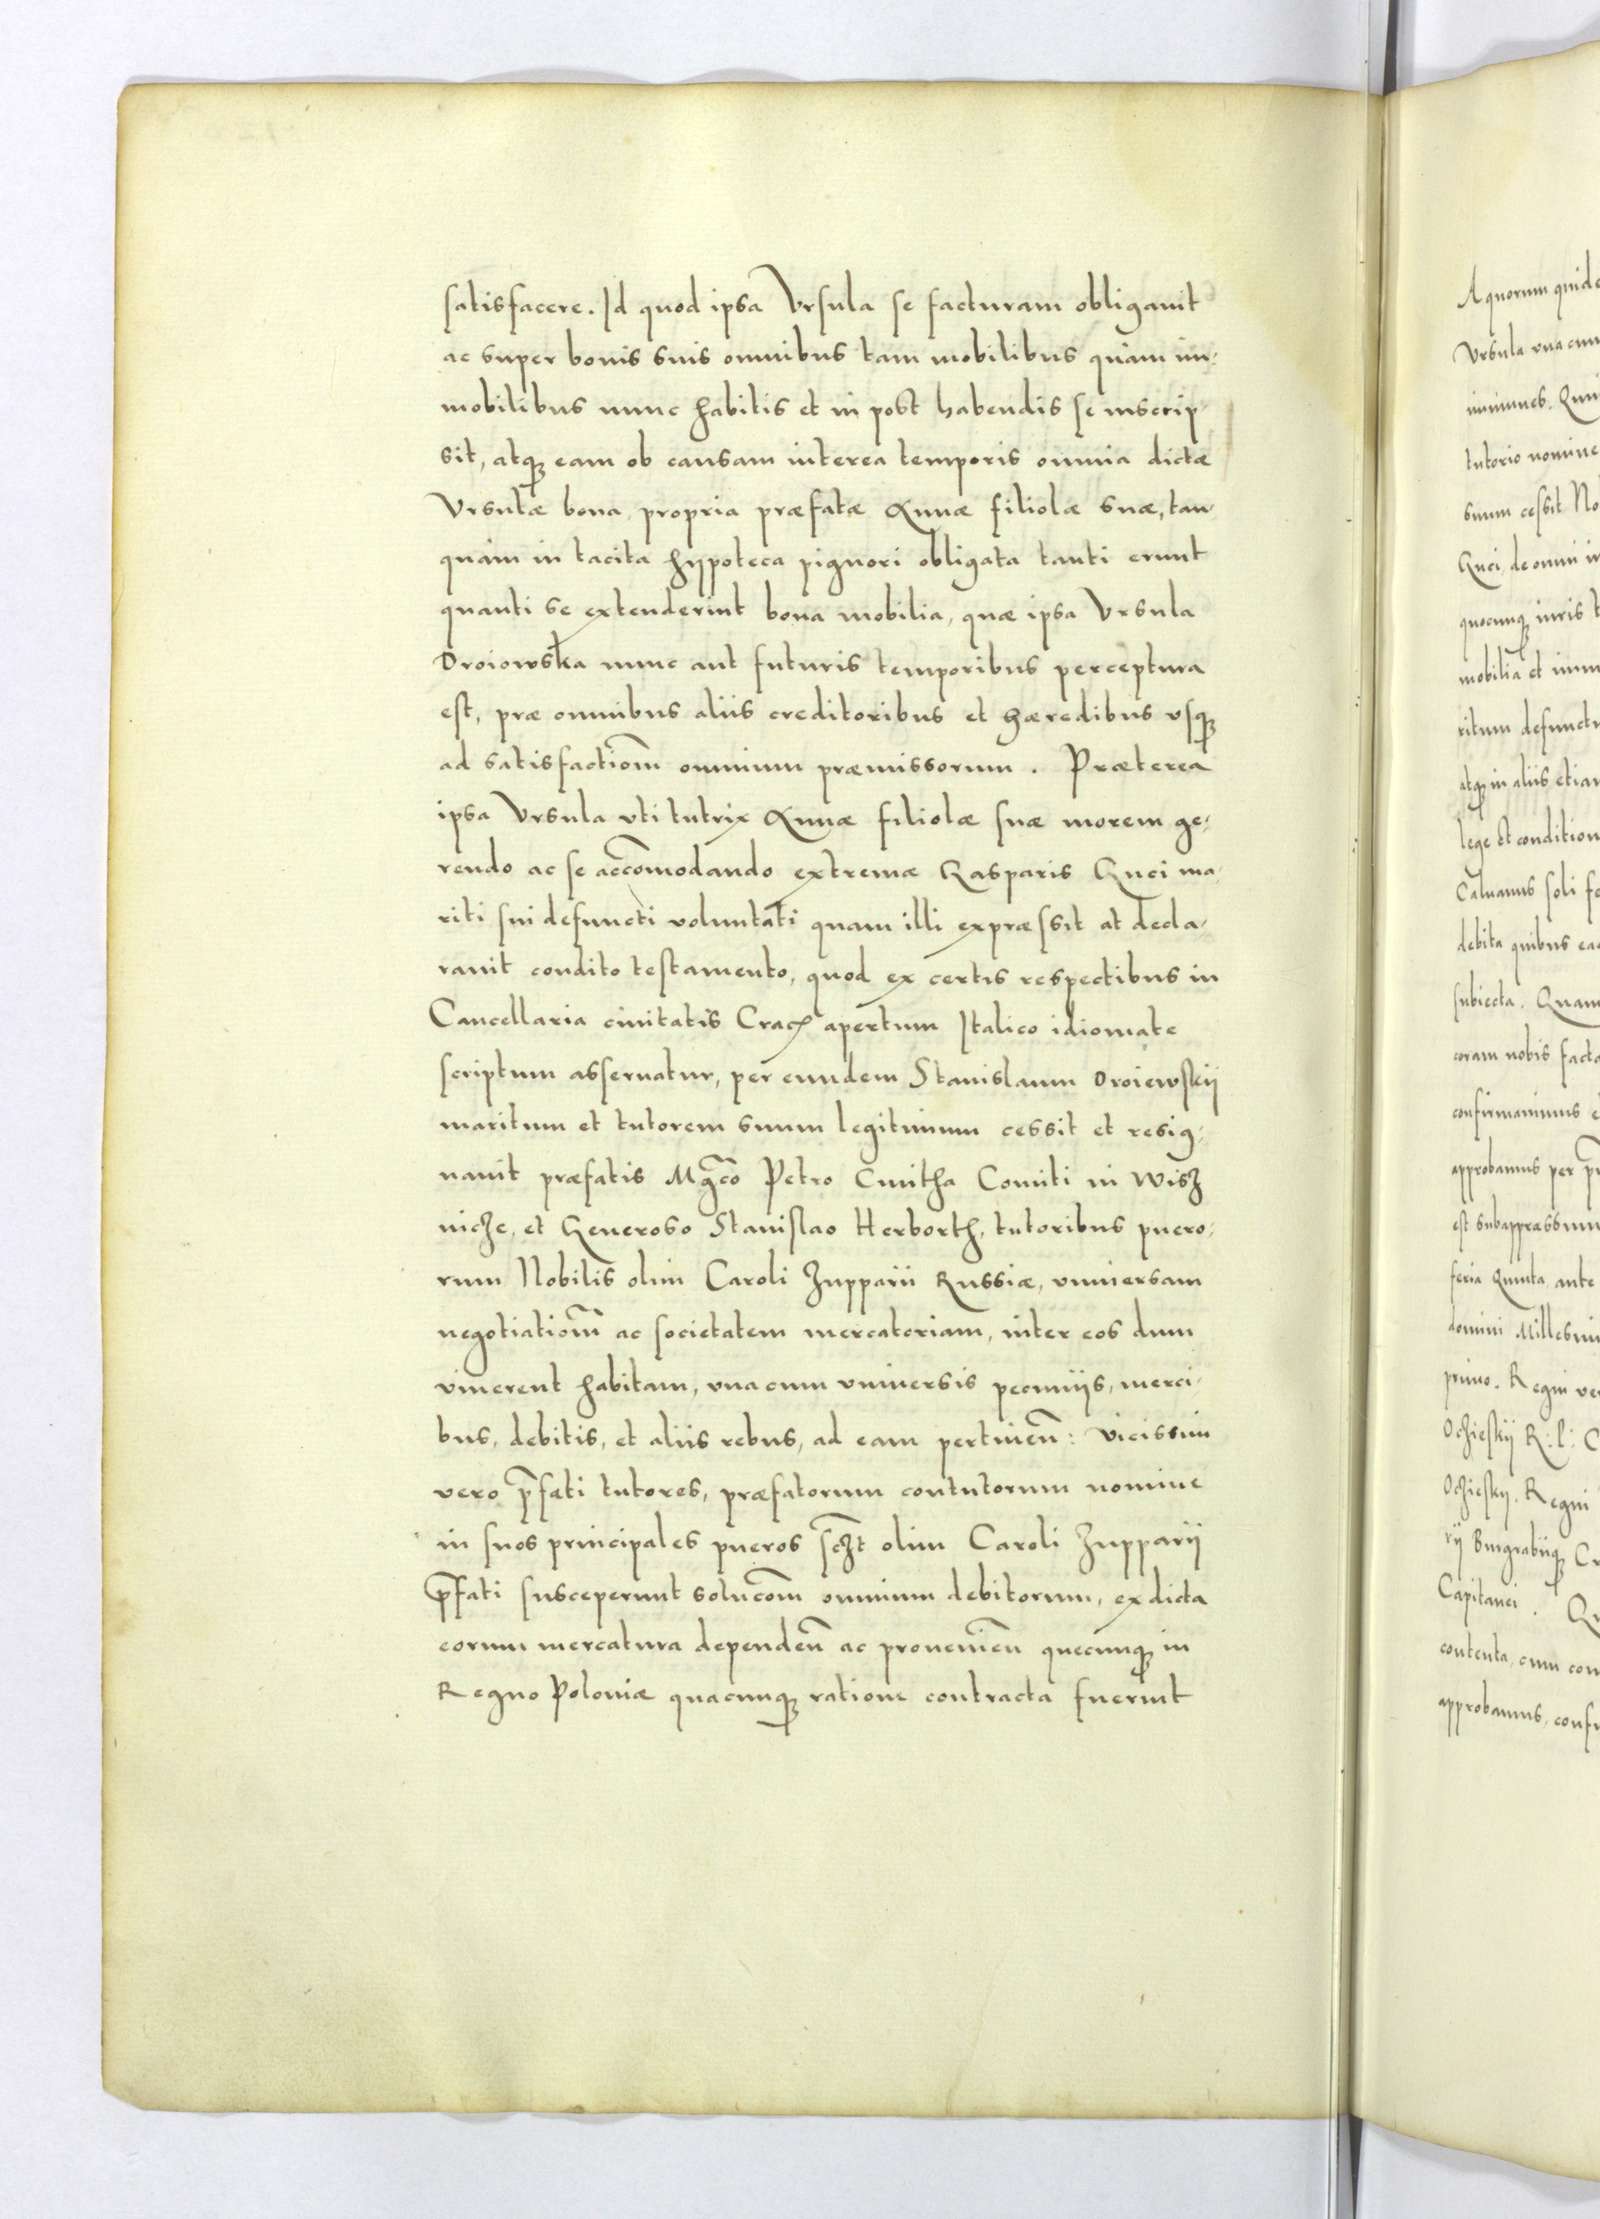 satisfacere. Id quod ipsa Vrsula se facturam obligauit
ac super bonis suis omnibus tam mobilibus quàm im-
mobilibus nunc habitis et in post habendis se inscrip-
sit, atq₃ eam ob causam interea temporis omnia dictæ
Vrsulæ bona propria præfatæ Annæ filiolæ suæ, tan-
quàm in tacita hypoteca pignori obligata tanti erunt
quanti se extenderint bona mobilia, quæ ipsa Vrsula
Droiowska nunc aut futuris temporibus perceptura
est, præ omnibus aliis creditoribus et hæredibus vsq₃
ad satisfactiom̃ omnium præmissorum. Præterea
ipsa Vrsula vti tutrix Annæ filiolæ suæ morem ge-
rendo ac se accõmodando extremæ Gasparis Guci ma-
riti sui defuncti voluntati quam illi expræssit at decla-
rauit condito testamento, quod ex certis respectibus in
Cancellaria ciuitatis Crac̃ apertum Italico idiomate
scriptum asseruatur, per eundem Stanislaum Droiewskij
maritum et tutorem suum legitimum cessit et resig-
nauit præfatis Mgc̃o Petro Cmitha Comiti in Wisz
nicze, et Generoso Stanislao Herborth, tutoribus puero-
rum Nobilis olim Caroli Zupparii Russiæ, vniuersam
negotiatiom̃ ac societatem mercatoriam, inter eos dum
viuerent habitam, vna cum vniuersis pecuniis, merci-
bus, debitis, et aliis rebus, ad eam pertineñ: Vicissim
vero p̃fati tutores, præfatorum contutorum nomine
in suos principales pueros sc̃zt olim Caroli Zupparij
p̃fati susceperunt solucom̃ omnium debitorum, ex dicta
eorum mercatura dependeñ ac prouenieñ quecunq₃ in
Regno Poloniæ quacunq₃ ratione contracta fuerint
A quorum
Vrsula vna cum
immunes.
tutorio nomine
suum cessit
Guci, de omni
quocunq₃ iuris
mobilia et
ritum
atq₃ in aliis
lege et
Caluanus soli
debita quibus
subiecta.
coram nobis
confirmauimus
approbamus per
est
feria Quinta ante
domini
primo. Regni
Ocziesky R: l:
Ocziesky. Regni
rij Burgrabijq₃
Capitanei.
contenta, cum
approbamus,